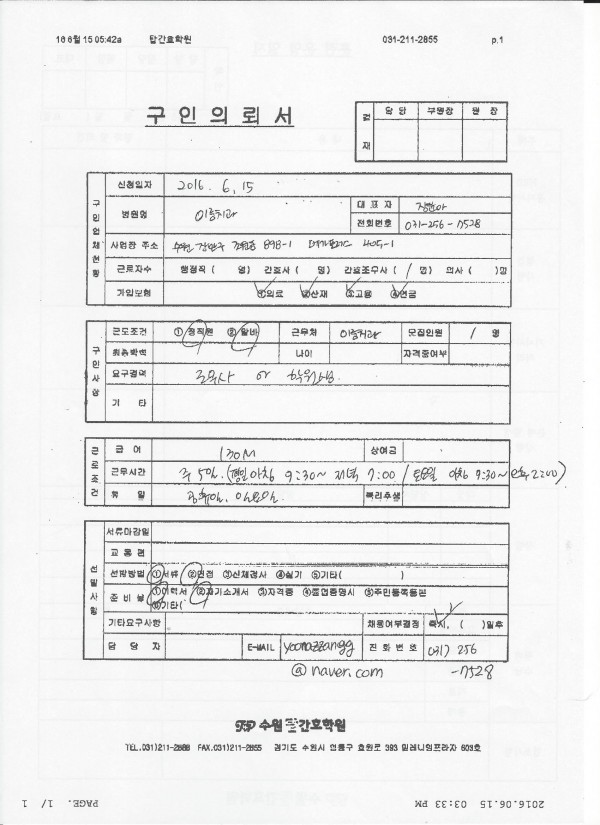 16 6월 15 05:42a 탑간호학원 031-211-2855 p.1
구 인 의 뢰 서
결 재 담 당 부원장 원 장
구인업체현황
신청일자 2016. 6. 15
병원명 이룸치과 대 표 자
전화번호 031-256-7528
사업장 주소 수원 장안구 898-1 405-1
근로자수 행정직 ( 명) 간호사 ( 명) 간호조무사 ( / 명) 의사 ( )명
가입보험 ①의료 ②산재 ③고용 ④연금
구인사항
근도조건 ① 정직원 ② 알바 근무처 이룸치과 모집인원 / 명
최종학력 나이 자격증여부
요구경력 조무사 or
기 타
근로조건
급 여 130M 상여금
근무시간 주 5일. (평일아침 9:30~ 저녁 7:00 / 토요일 아침 9:30~ 오후 2:00)
휴 일 공휴일, 일요일. 복리후생
선발사항
서류마감일
교 통 편
선발방법 ①서류 ②면접 ③신체검사 ④실기 ⑤기타( )
준 비 물 ①이력서 ②자기소개서 ③자격증 ④졸업증명서 ⑤주민등록등본
⑥기타(
기타요구사항 채용여부결정 즉시, ( )일후
담 당 자 E-MAIL yoonazzangg 전 화 번 호 031) 256
@naver.com -7528
수원 탑간호학원
TEL.031)211-2888 FAX.031)211-2855 경기도 수원시 영통구 효원로 393 밀레니엄프라자 603호
2016.06.15 03:33 PM PAGE. 1/ 1